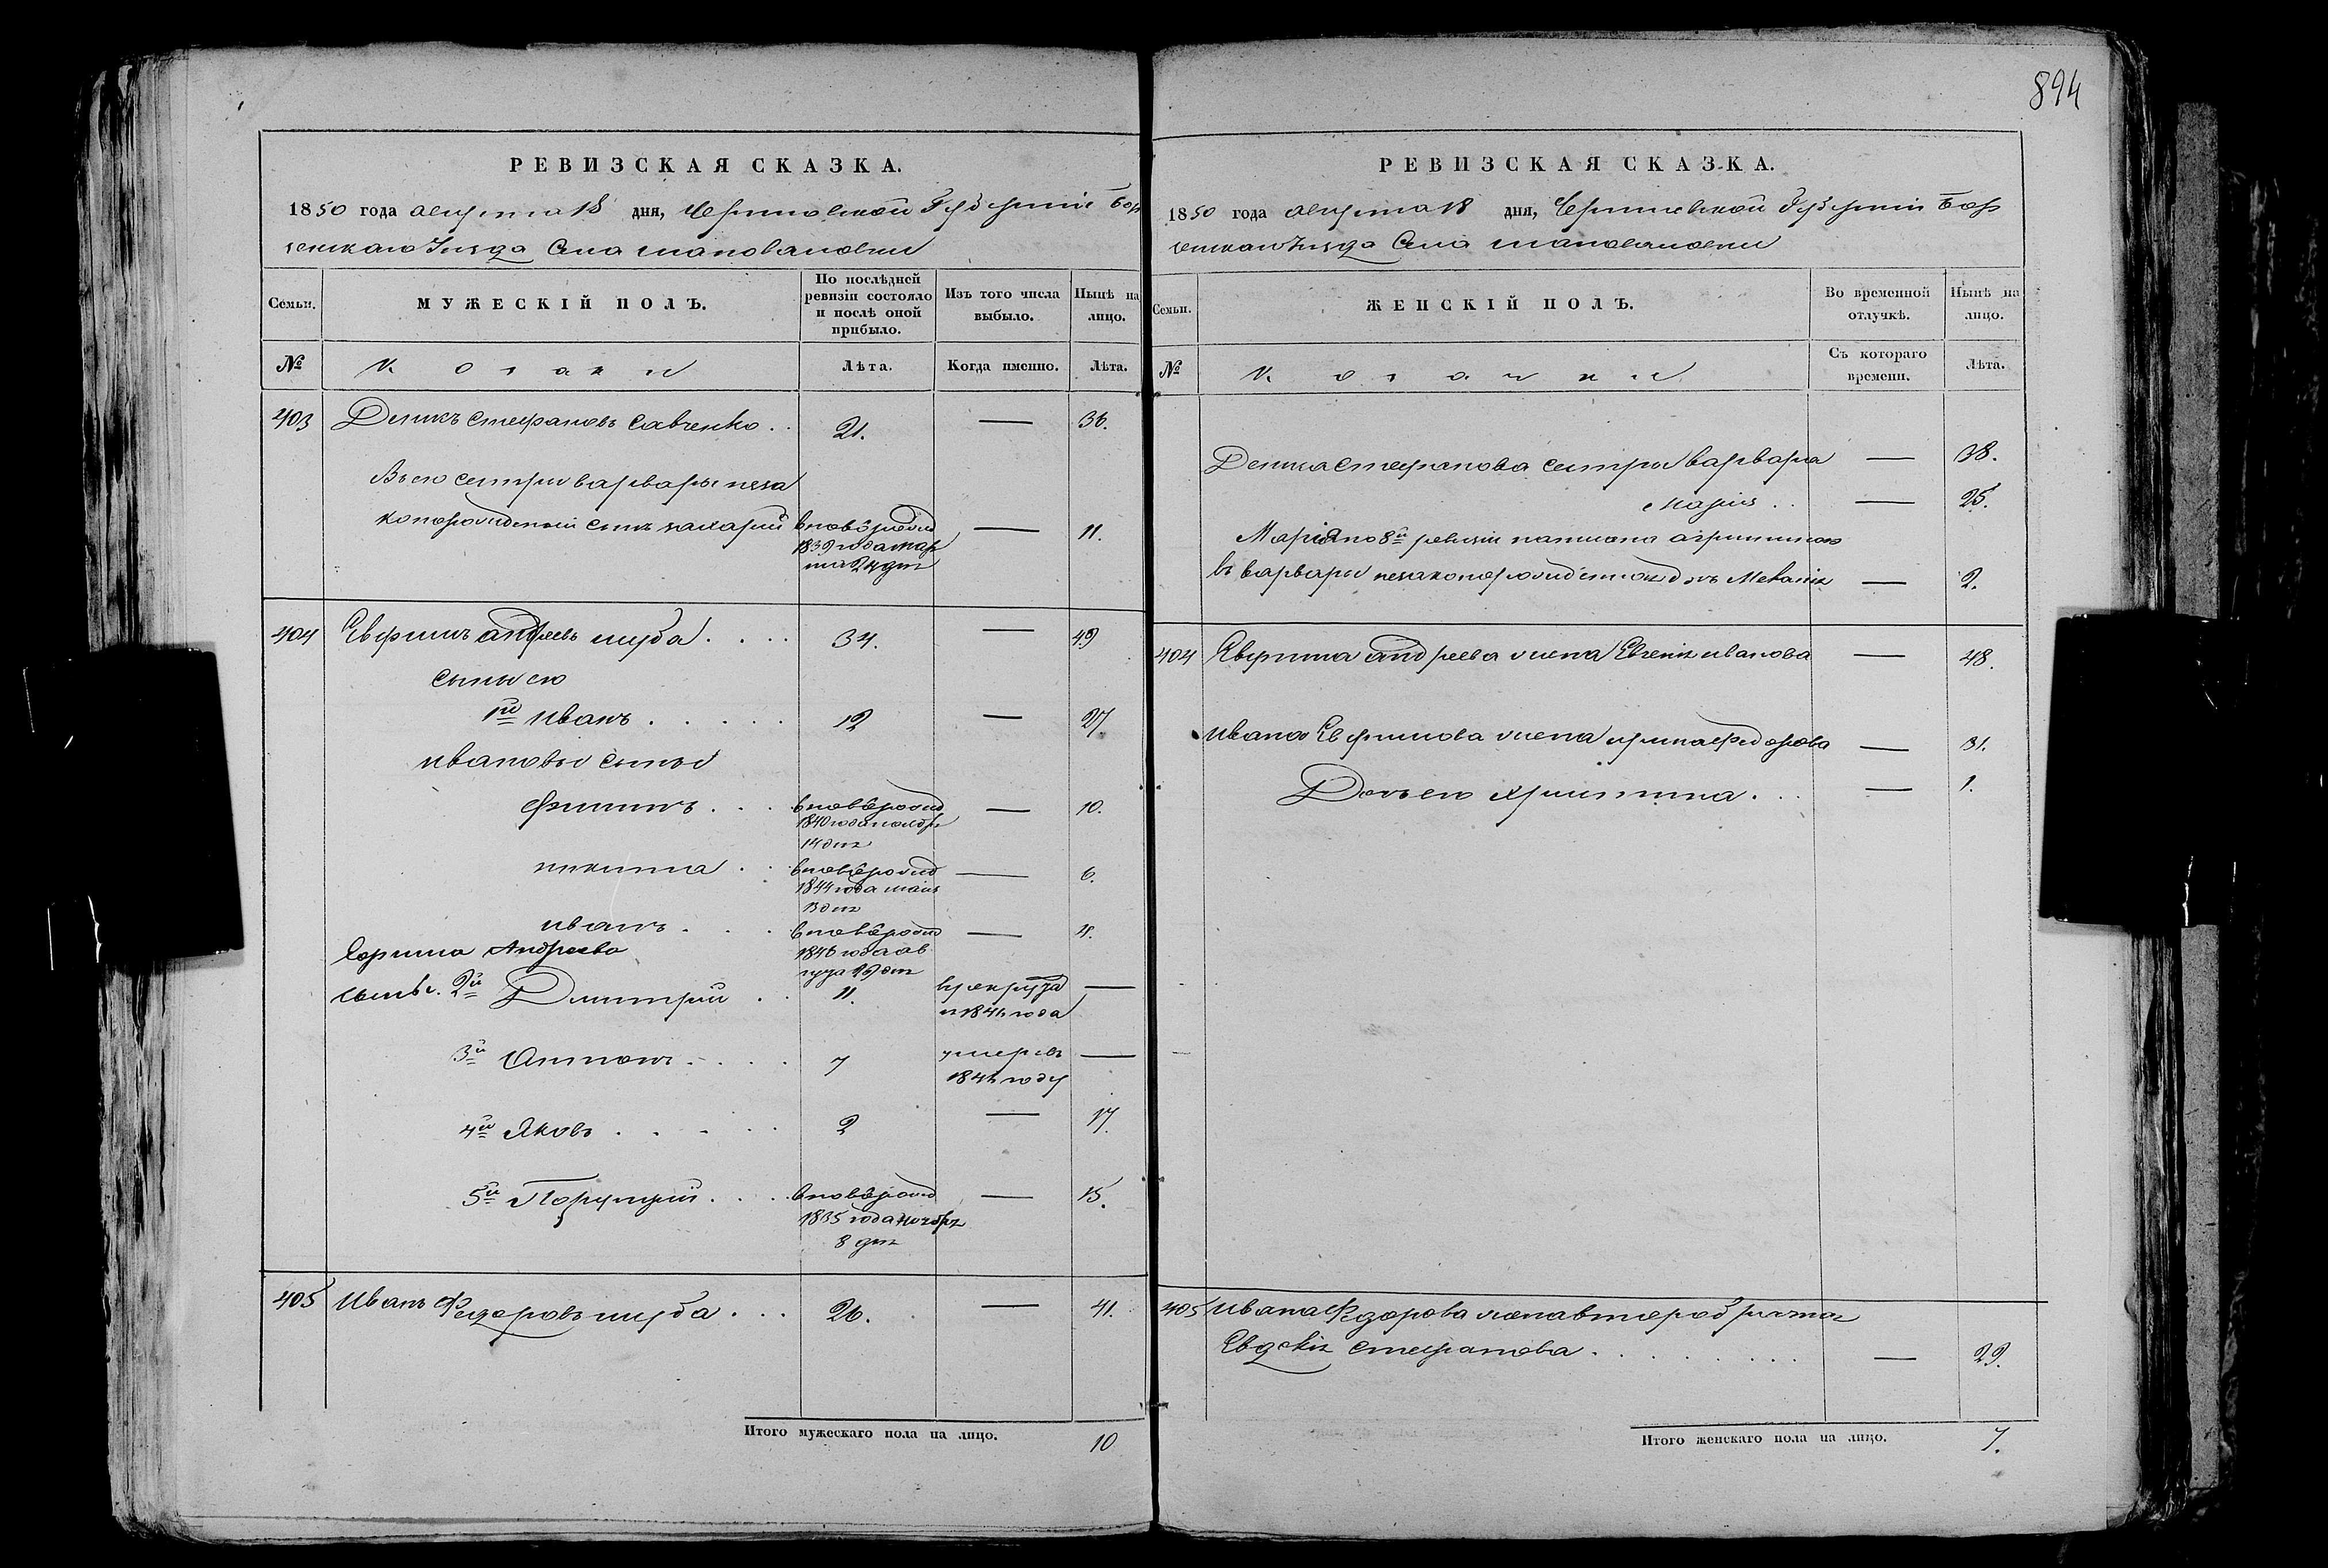 894
РЕВИЗСКАЯ СКАЗКА.
1850 года августа 18 дня, Черниговской Губернiи Бор
зенскаго Уезда Села шаповаловки
Семьи. МУЖЕСКІЙ ПОЛЪ. По послѣдней ревизіи состояло и послѣ оной прибыло. Изъ того числа выбыло. Нынѣ на лицо.
№ Козаки Лѣта. Когда именно. Лѣта.
403 Денисъ стефановъ савченко . . 21. — 36.
Въ его сестры варвары неза
конорожденный сынъ захарий вновь рожд — 11.
1839 года мар
та 24 дня
404 Евфимъ андреевъ шуба . . . . 34. — 49
сыны его
1й иванъ . . . . . 12 — 27.
ивановы сыны
филипъ . . . вновь рожд — 10.
1840 года ноября
14 дня
никита . . вновь рожд — 6.
1844 года мая
13 дня
иванъ . . . вновь рожд — 4.
Ефима Андреева
1846 года ав
густа 29 дня
сынъ. 2й Дмитрий . . 11. в рекрута —
1844 года
3й Антонъ . . . . 7 умеръ въ —
184 году
4й Яковъ . . . . . 2 — 17.
5й Порфирий . . . . вновь рожд — 15.
1835 года ноября
8 дня
405 Иванъ Федоровъ шуба . . . 26. — 41.
Итого мужескаго пола на лицо. 10
РЕВИЗСКАЯ СКАЗКА.
1850 года августа 18 дня, Черниговской Губернiи Бор
зенскаго Уезда Села шаповаловки
Семьи. ЖЕНСКІЙ ПОЛЪ. Во временной отлучкѣ. Нынѣ на лицо.
№ Козачки Съ котораго времени. Лѣта.
Дениса Стефанова сестры варвара — 38.
Марія . . — 25.
Марія по 8й ревизіи написана
въ варвары незаконорожденная дочь Меланія — 2.
404 Евфима андреева жена Евгения иванова — 48.
Ивана Евфимова жена ирина федорова — 31.
Дочь его христина . . . — 1.
405 Ивана Федорова жена второбрачная
Евдокія стефанова . . . . . . . . — 29.
Итого женскаго пола на лицо. 7.